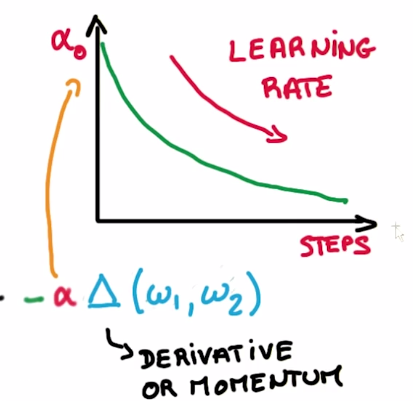 α₀
LEARNING
RATE
STEPS
- α Δ (ω₁, ω₂)
DERIVATIVE
OR MOMENTUM